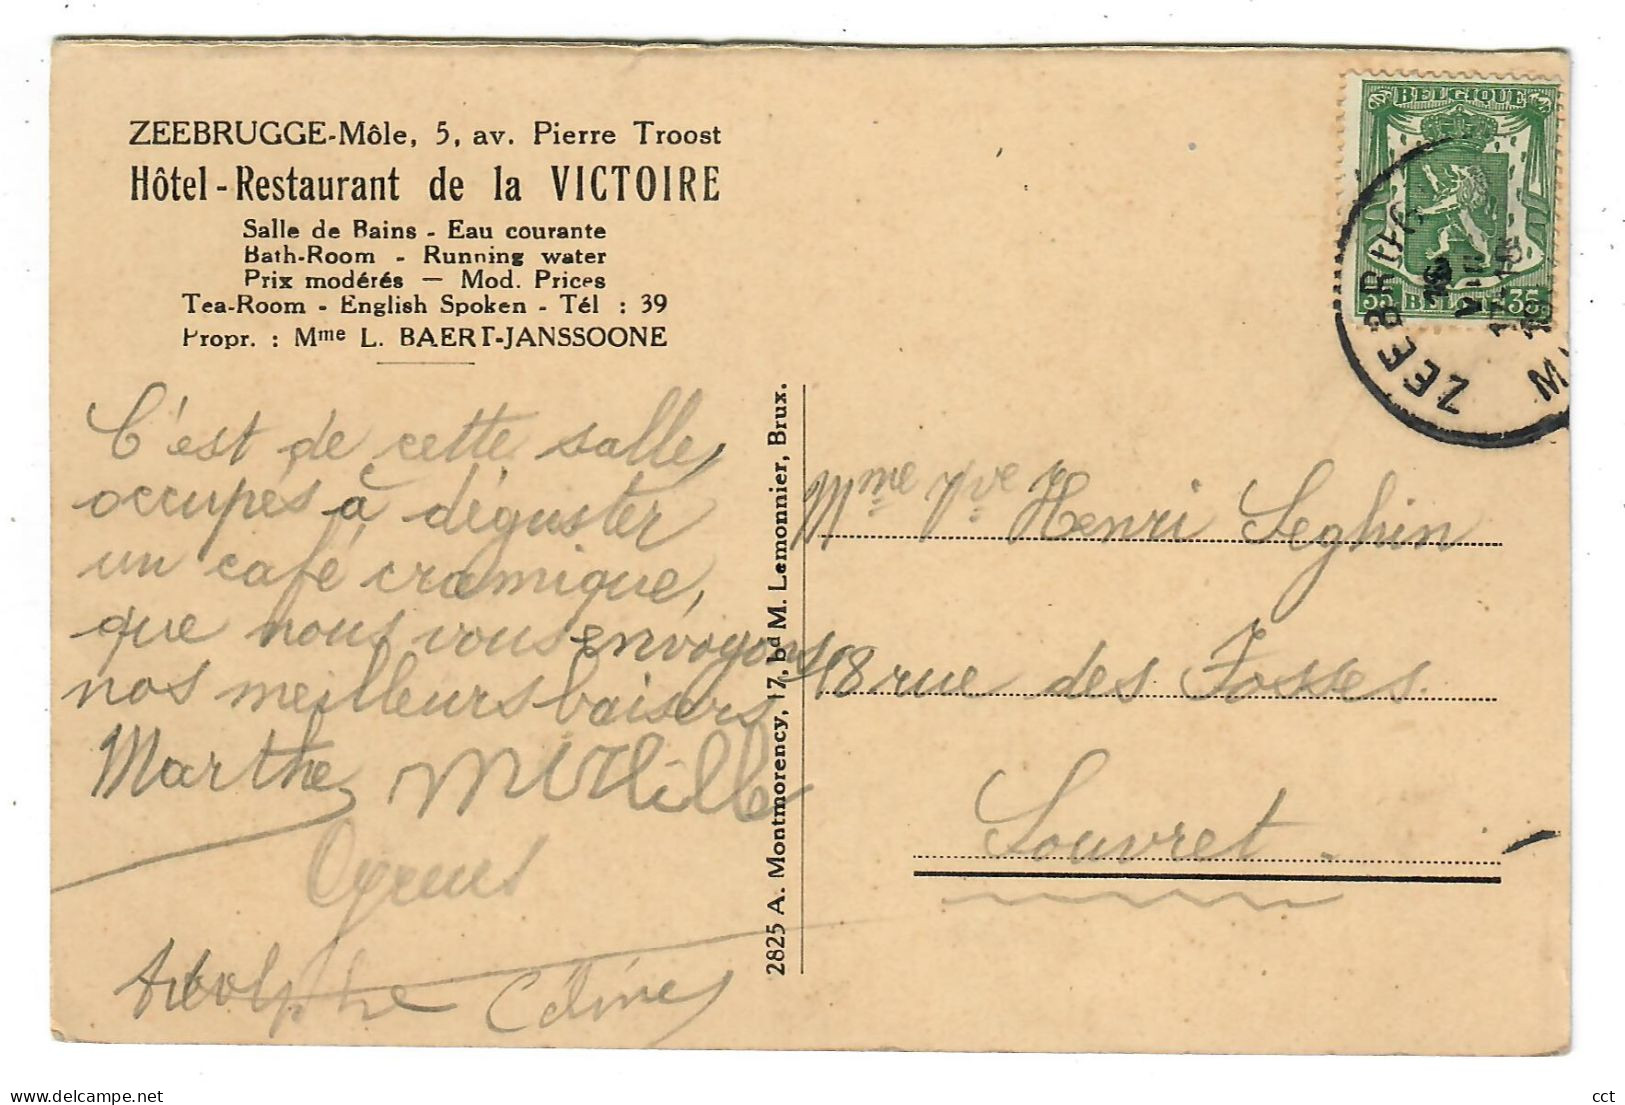 ZEEBRUGGE-Môle, 5, av. Pierre Troost
Hôtel - Restaurant de la VICTOIRE
Salle de Bains - Eau courante
Bath-Room - Running water
Prix modérés — Mod. Prices
Tea-Room - English Spoken - Tél : 39
Propr. : Mme L. BAERT-JANSSOONE
C'est de cette salle,
occupés à déguster
un café cramique,
que nous vous envoyons
nos meilleurs baisers
Marthe
Adolphe
2825 A. Montmorency, 17, bd M. Lemonnier, Brux.
BELGIQUE
35 BELGIË 35
ZEEBRUG
Mme Vve Henri Seghin
18 rue des Fosses.
Souvret.
www.delcampe.net
cct